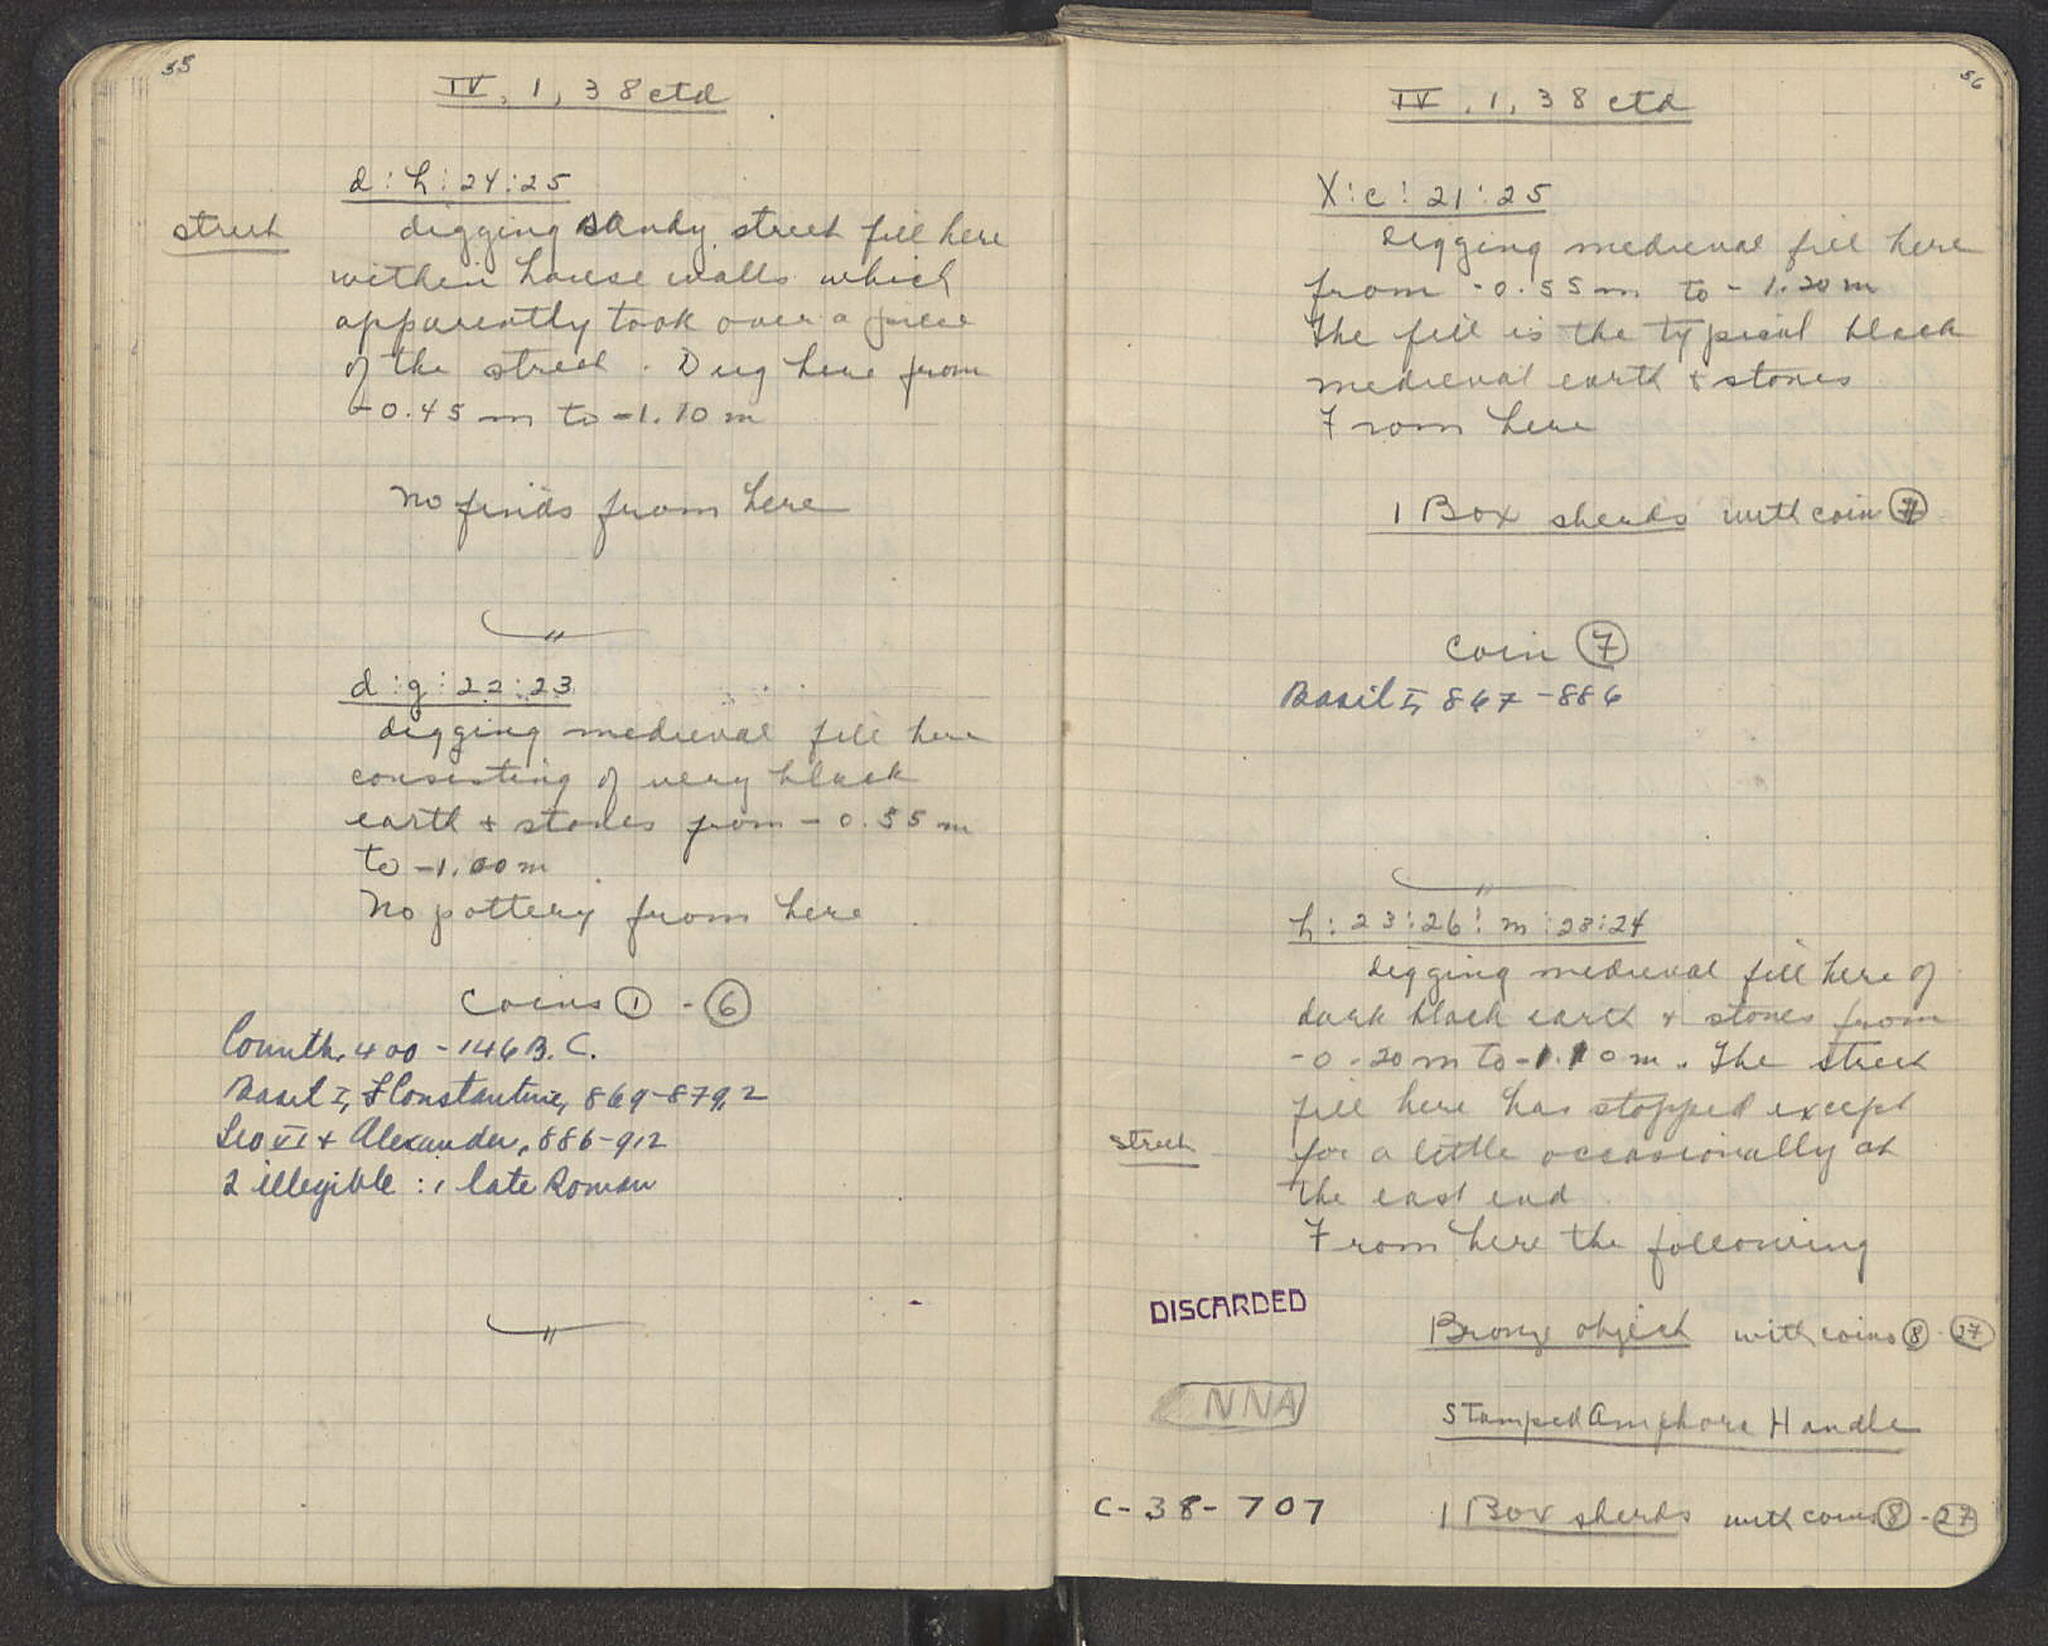 55
IV, 1, 38 ctd
d : h : 24 : 25
street
digging sandy street fill here
within house walls which
apparently took over a piece
of the street. Dug here from
-0.45 m to -1.10 m
No finds from here
d : g : 22 : 23
digging medieval fill here
consisting of very black
earth + stones from -0.55 m
to -1.00 m
No pottery from here
Coins 1 - 6
Corinth, 400 - 146 B.C.
Basil I, + Constantine, 869-879, 2
Leo VI + Alexander, 886-912
2 illegible : 1 late Roman
56
IV, 1, 38 ctd
X : c : 21 : 25
Digging medieval fill here
from -0.55 m to -1.20 m
The fill is the typical black
medieval earth + stones
From here
1 Box sherds with coin 7
Coin 7
Basil I, 867-886
h : 23 : 26 : m : 23 : 24
Digging medieval fill here of
dark black earth + stones from
-0.20 m to -1.10 m. The street
fill here has stopped except
street
for a little occasionally at
the east end.
From here the following
DISCARDED
Bronze object with coins 8 - 27
NNA
Stamped Amphora Handle
C-38-707
1 Box sherds with coins 8 - 27